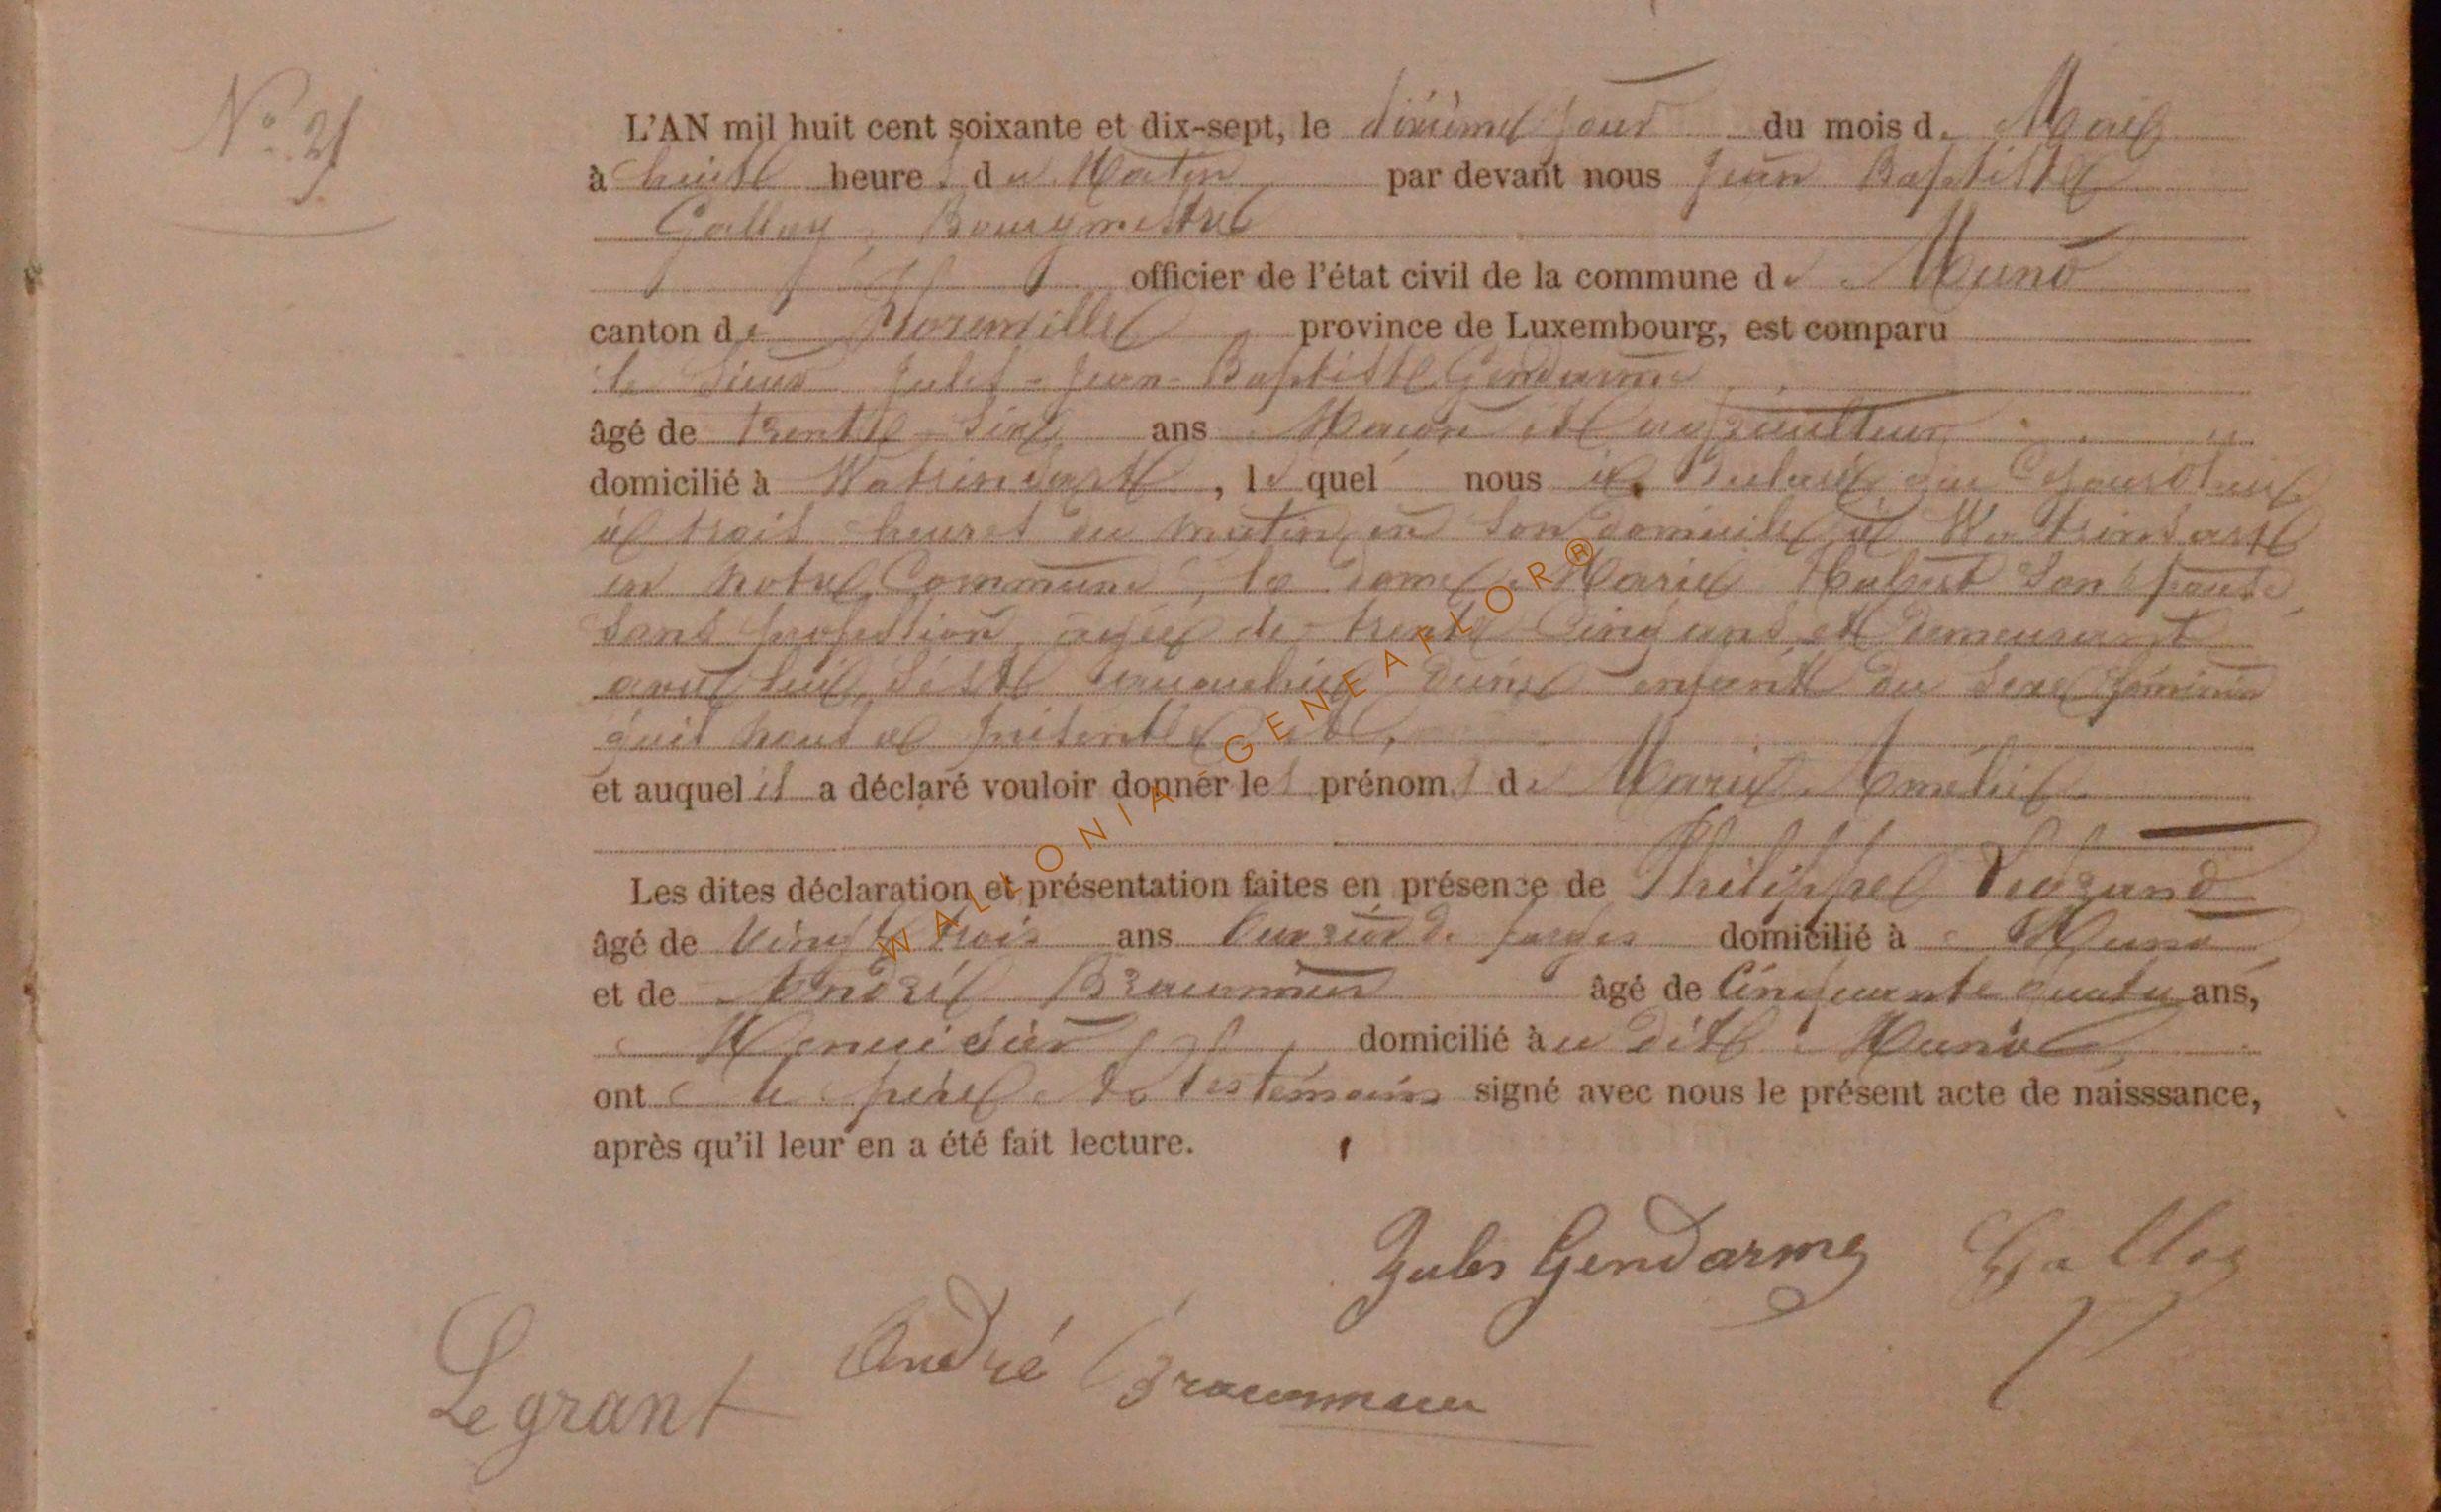 N° 21
L'AN mil huit cent soixante et dix-sept, le dixième jour du mois de Mai
à huit heures du Matin par devant nous Jean Baptiste
Galloy Bourgmestre
officier de l'état civil de la commune de Muno
canton de Florenville province de Luxembourg, est comparu
le sieur Jules-Jean-Baptiste Gendarme
âgé de trente-six ans Maçon et agriculteur
domicilié à Watrinsart, lequel nous a déclaré que
à trois heures du matin en son domicile à Watrinsart
en notre Commune, la dame Marie son épouse
sans profession âgée de trente cinq ans et demeurant
avec lui, s'est accouchée d'une enfant du sexe féminin
qu'il nous a présenté et
et auquel il a déclaré vouloir donner les prénoms de Marie Amélie
Les dites déclaration et présentation faites en présence de Philippe Legrand
âgé de vingt trois ans Ouvrier de forges domicilié à Muno
et de André Braconnier âgé de Cinquante quatre ans,
Menuisier domicilié au dit Muno
ont le père et les témoins signé avec nous le présent acte de naisssance,
après qu'il leur en a été fait lecture.
Jules Gendarme Galloy
Legrant André Braconnier
WALLONIA GENEAFLOR®